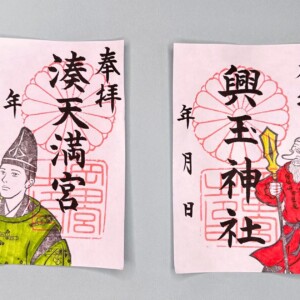 奉拝
湊天満宮
年
興王神社
年月日